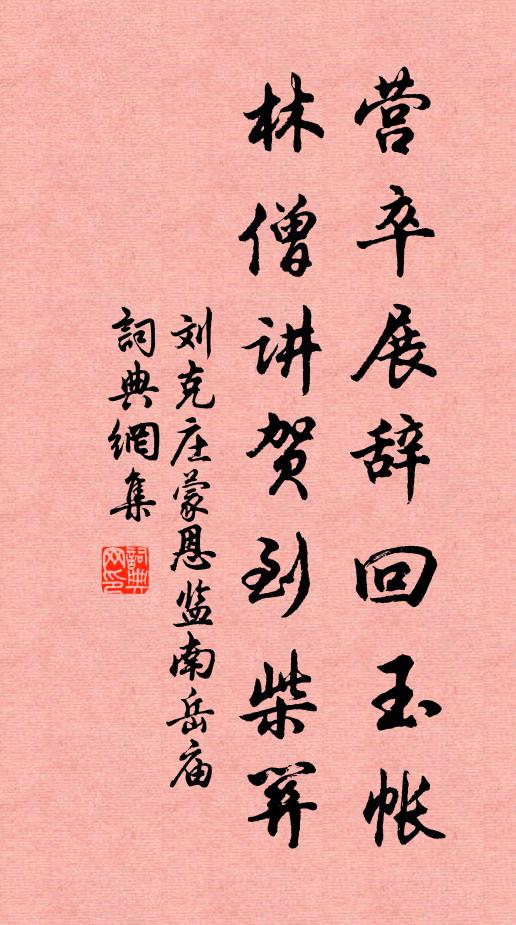 营卒展辞回玉帐
林僧讲贺到柴关
刘克庄蒙恩监南岳庙
詞典網集
詞典网印